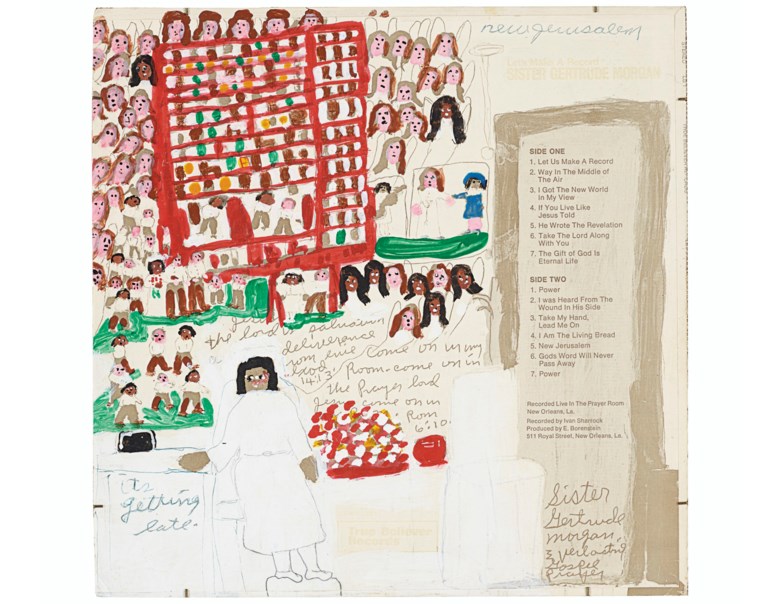 new Jerusalem
Lets Make A Record
SISTER GERTRUDE MORGAN
SIDE ONE
1. Let Us Make A Record
2. Way In The Middle of
The Air
3. I Got The New World
In My View
4. If You Live Like
Jesus Told
5. He Wrote The Revelation
6. Take The Lord Along
With You
7. The Gift of God Is
Eternal Life
SIDE TWO
1. Power
2. I was Heard From The
Wound In His Side
3. Take My Hand,
Lead Me On
4. I Am The Living Bread
5. New Jerusalem
6. Gods Word Will Never
Pass Away
7. Power
Recorded Live In The Prayer Room
New Orleans, La.
Recorded by Ivan Sharrock
Produced by E. Borenstein
511 Royal Street, New Orleans, La.
the lord salvation
deliverance
come on in my
14:13 Room. come on in
the Prayer lord
come on in
Rom
6:10
its
getting
late.
True Believer
Records
Sister
Gertrude
morgan,
Everlasting
Gospel
Prayer